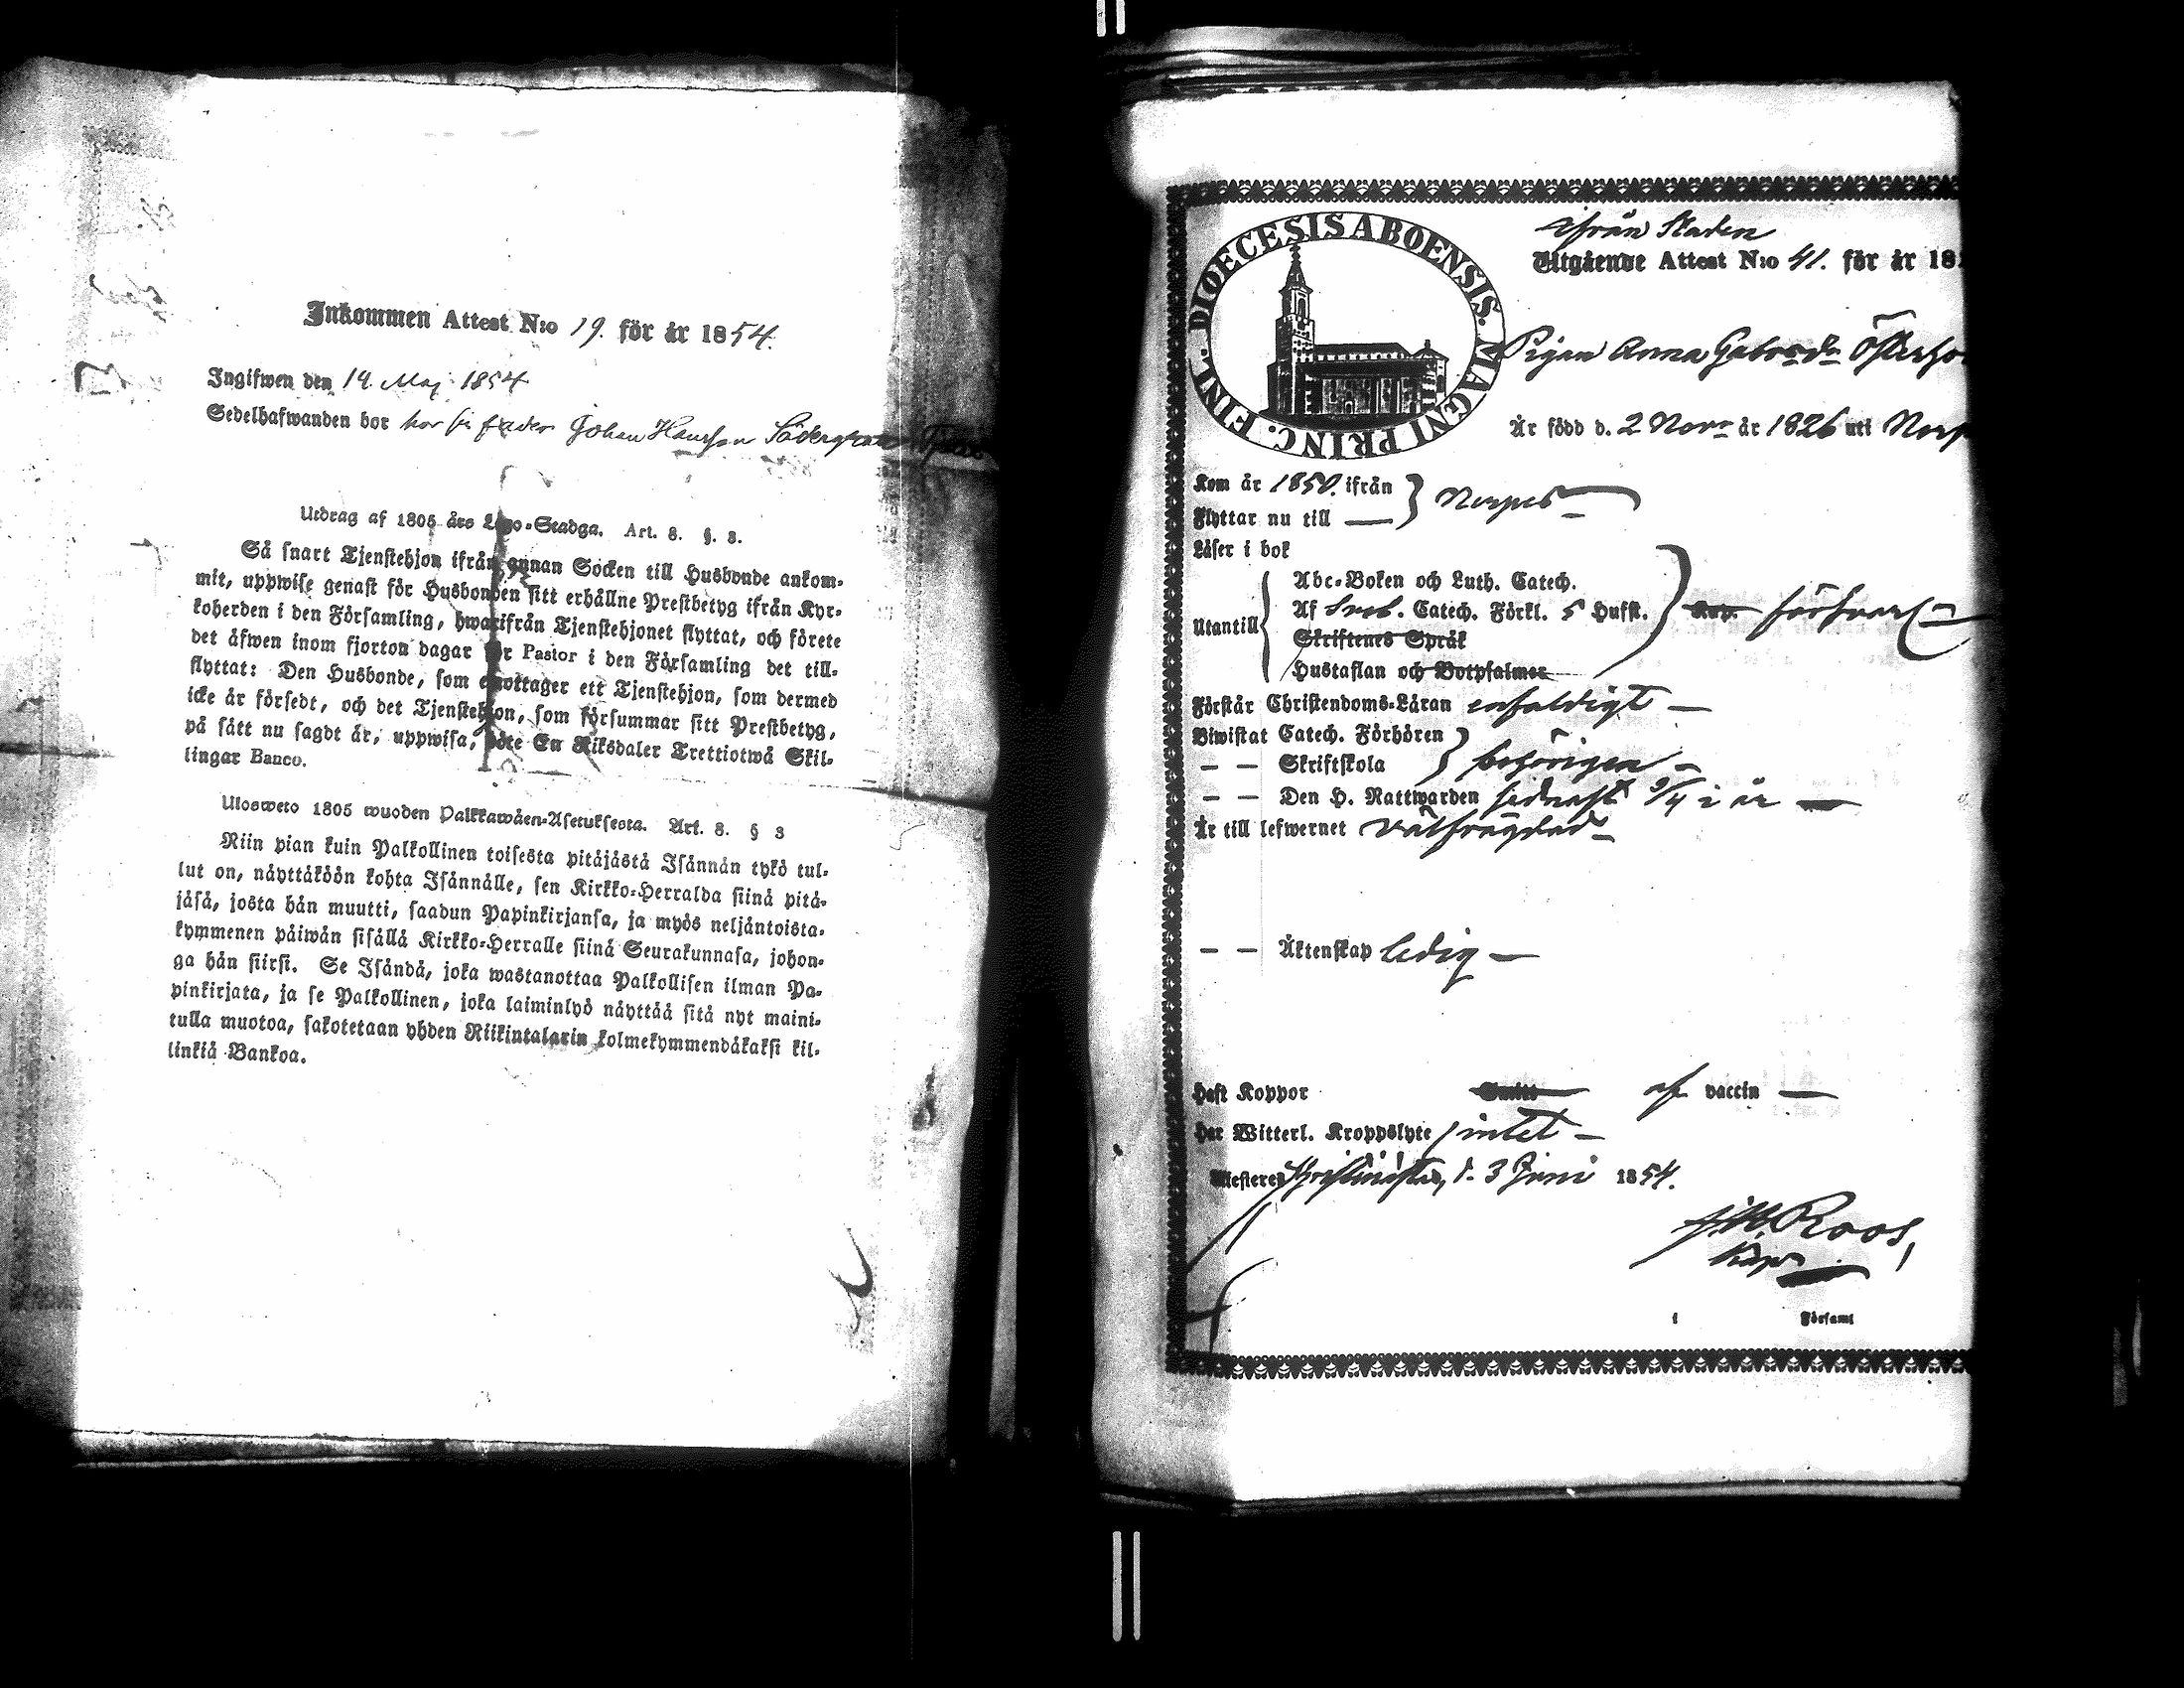 Inkommen Attest N:o 19. för år 1854.
Ingifwen den 19. Maj 1854
Sedelhafwanden bor hos sin fader Johan Hansson Södergran
Utdrag af 1805 års Lego-Stadga. Art. 8. §. 3.
Så snart Tjenstehjon ifrån annan Socken till Husbonde ankom-
mit, uppwise genast för Husbonden sitt erhållne Prestbetyg ifrån Kyr-
koherden i den Församling, hwarifrån Tjenstehjonet flyttat, och förete
det äfwen inom fjorton dagar för Pastor i den Församling det till-
flyttat: Den Husbonde, som emottager ett Tjenstehjon, som dermed
icke är försedt, och det Tjenstehjon, som försummar sitt Prestbetyg,
på sätt nu sagdt är, uppwisa, böte En Riksdaler Trettiotwå Skil-
lingar Banco.
Ulosweto 1805 wuoden Palkkawäen-Asetuksesta. Art. 8. § 3
Niin pian kuin Palkollinen toisesta pitäjästä Isännän tykö tul-
lut on, näyttäköön kohta Isännälle, sen Kirkko-Herralda siinä pitä-
jäsä, josta hän muutti, saadun Papinkirjansa, ja myös neljäntoista-
kymmenen päiwän sisällä Kirkko-Herralle siinä Seurakunnasa, johon-
ga hän siirsi. Se Isändä, joka wastanottaa Palkollisen ilman Pa-
pinkirjata, ja se Palkollinen, joka laiminlyö näyttää sitä nyt maini-
tulla muotoa, sakotetaan yhden Riikintalarin kolmekymmendäkaksi kil-
linkiä Bankoa.
DIOECESIS ABOENSIS. MAGNI PRINC. FINL.
ifrån Staden
Utgående Attest N:o 41. för år 18
Pigan Anna Gabrsdr
Är född d. 2 Novr år 1826 uti
Kom år 1850. ifrån
Flyttar nu till — Nerpes
Läser i bok
Abc-Boken och Luth. Catech.
Utantill Af Sveb. Catech. Förkl. 5 Hufst. försvarl
Skriftenes Språk
Hustaflan och Botpsalmer
Förstår Christendoms-Läran enfaldigt —
Biwistat Catech. Förhören
— — Skriftskola behörigen —
— — Den H. Nattwarden sednast 9/4 i år —
Är till lefwernet välfrägdad —
— — Äktenskap ledig —
Haft Koppor af vaccin —
Har Witterl. Kroppslyte intet —
Attesteres Christinestad, d. 3 Juni 1854.
Roos,
Kapn
i Församl